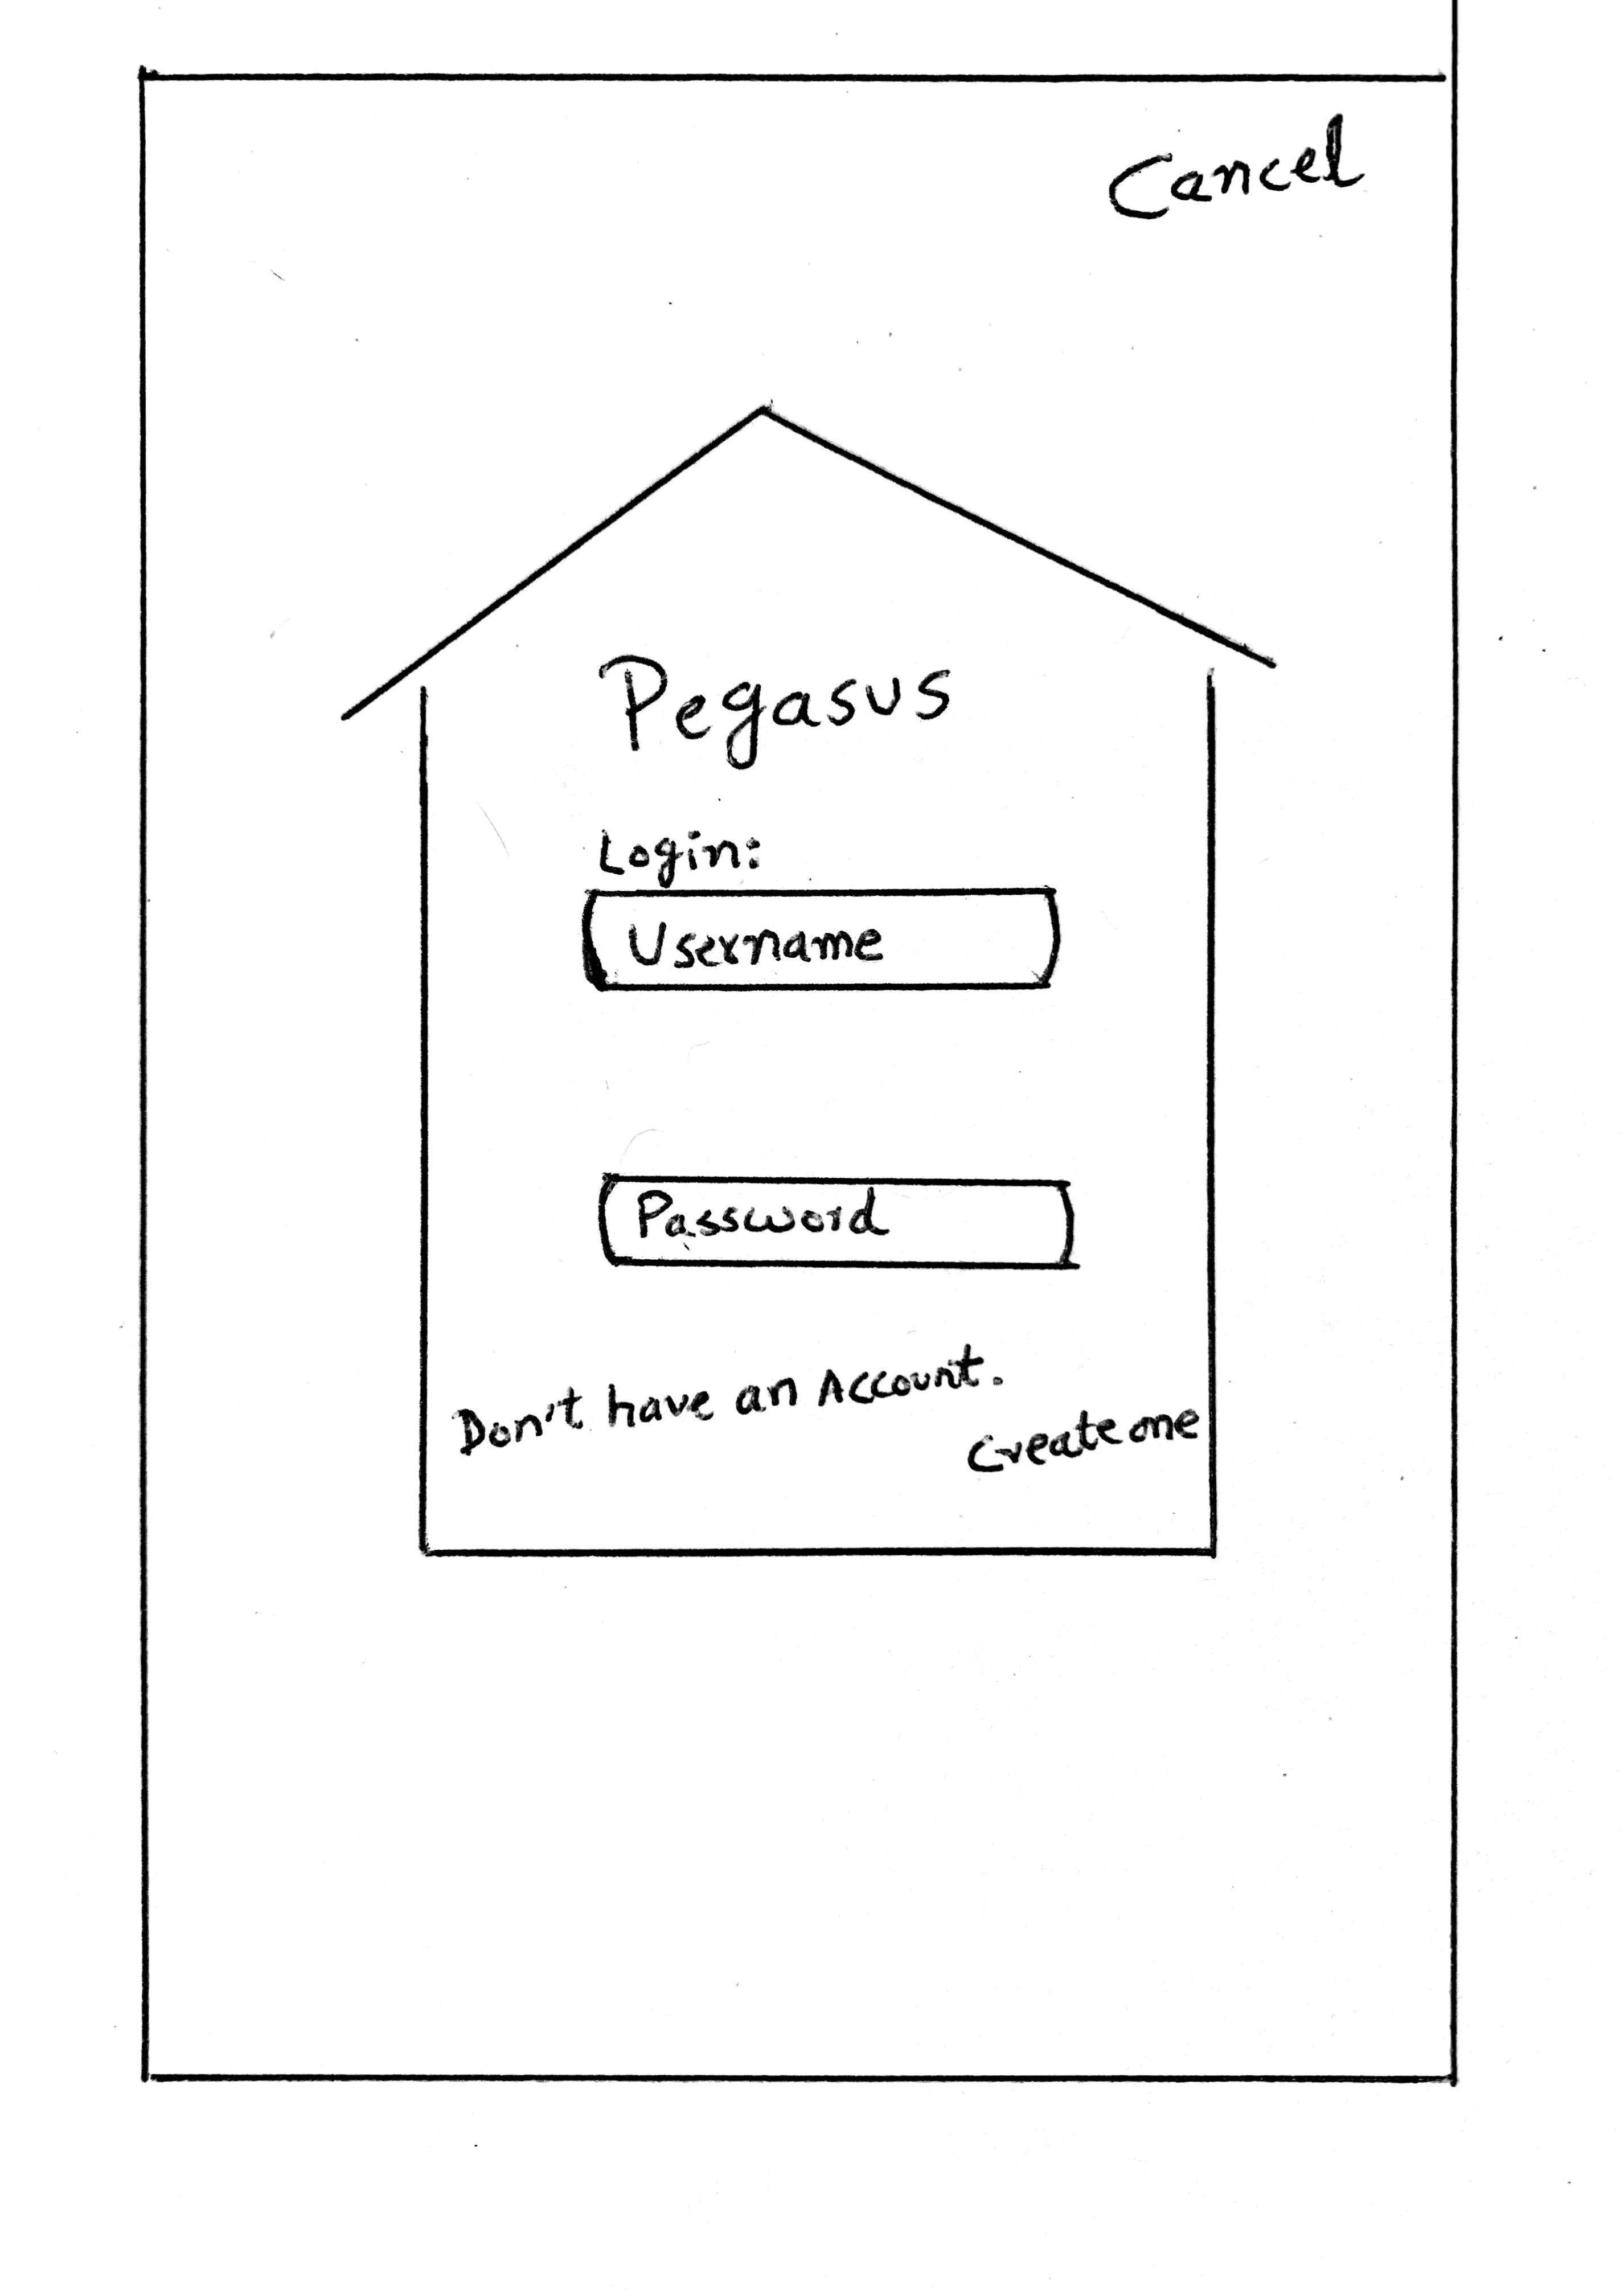 Cancel
Pegasus
Login:
Username
Password
Don't have an Account.
Create one